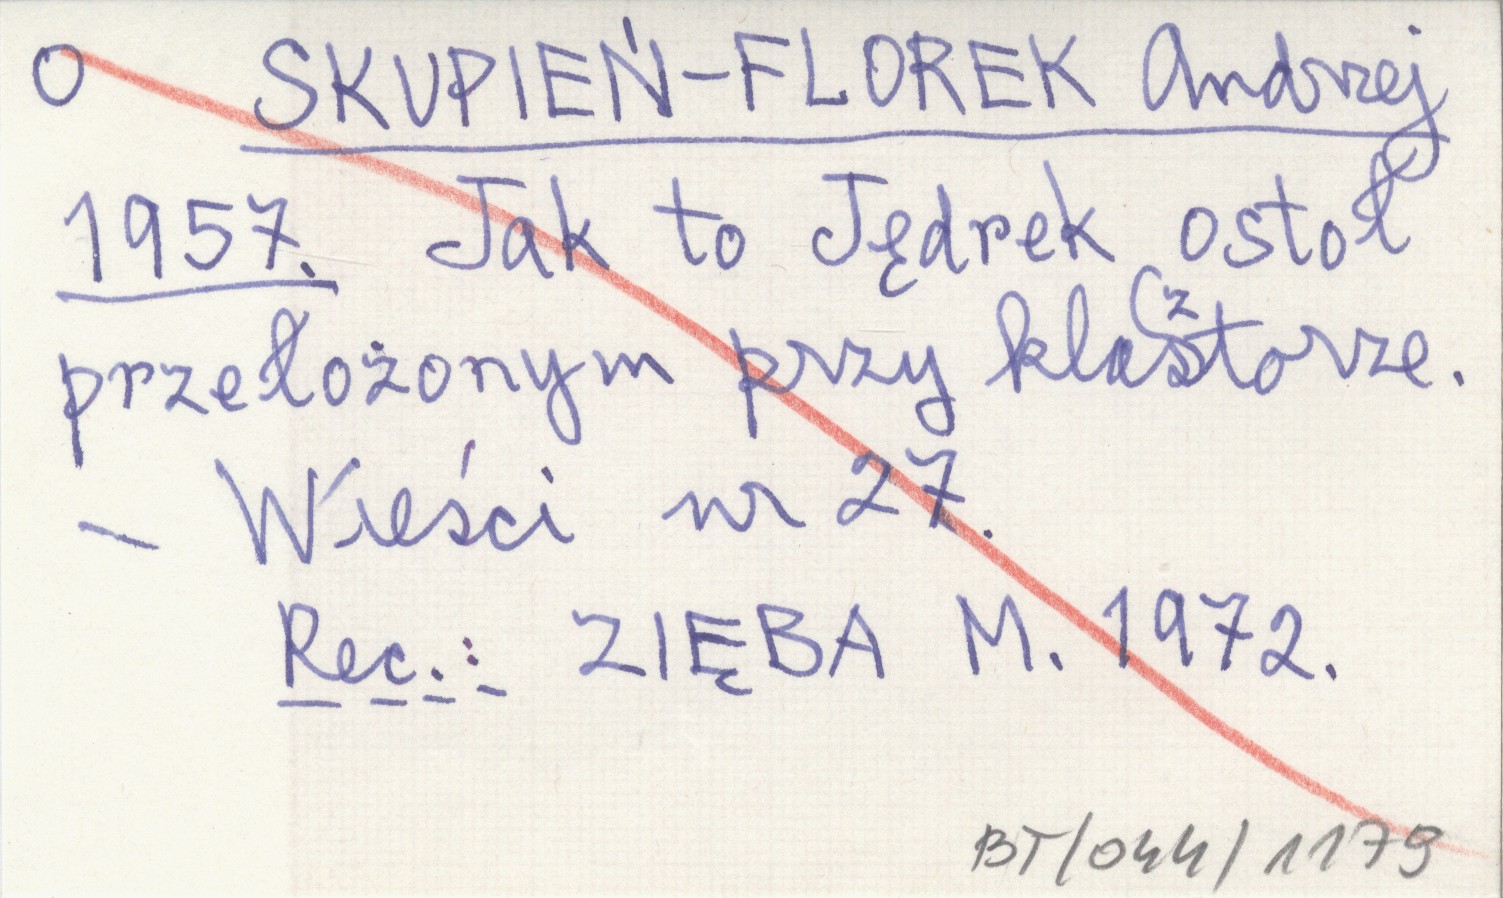 O SKUPIEŃ-FLOREK Andrzej
1957. Jak to Jędrek ostoł
przełożonym przy klasztorze.
– Wieści nr 27.
Rec.: ZIĘBA M. 1972.
BT/044/1179